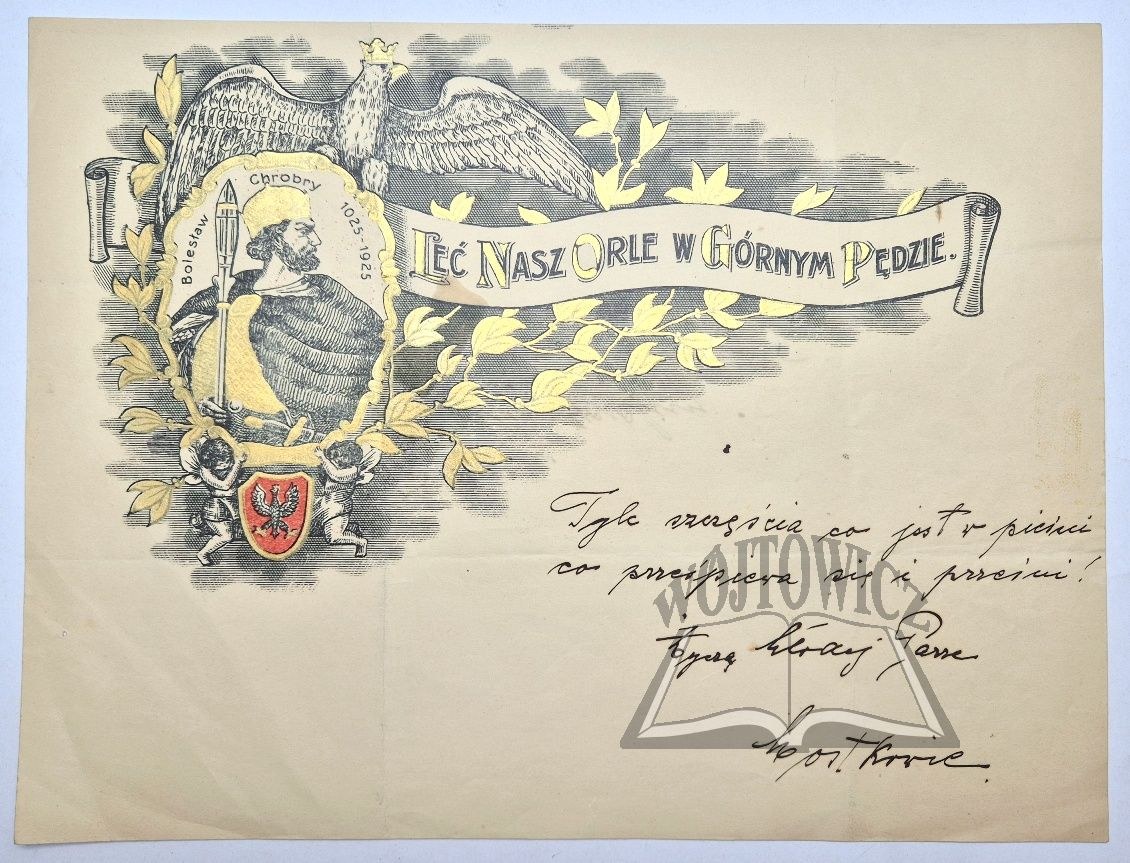 Bolesław Chrobry 1025-1925
LEĆ NASZ ORLE W GÓRNYM PĘDZIE.
Tyle szczęścia co jest w pieśni
co prześpiewa się i prześni!
życzą Młodej Parze
Mostkowie.
WOJTOWICZ